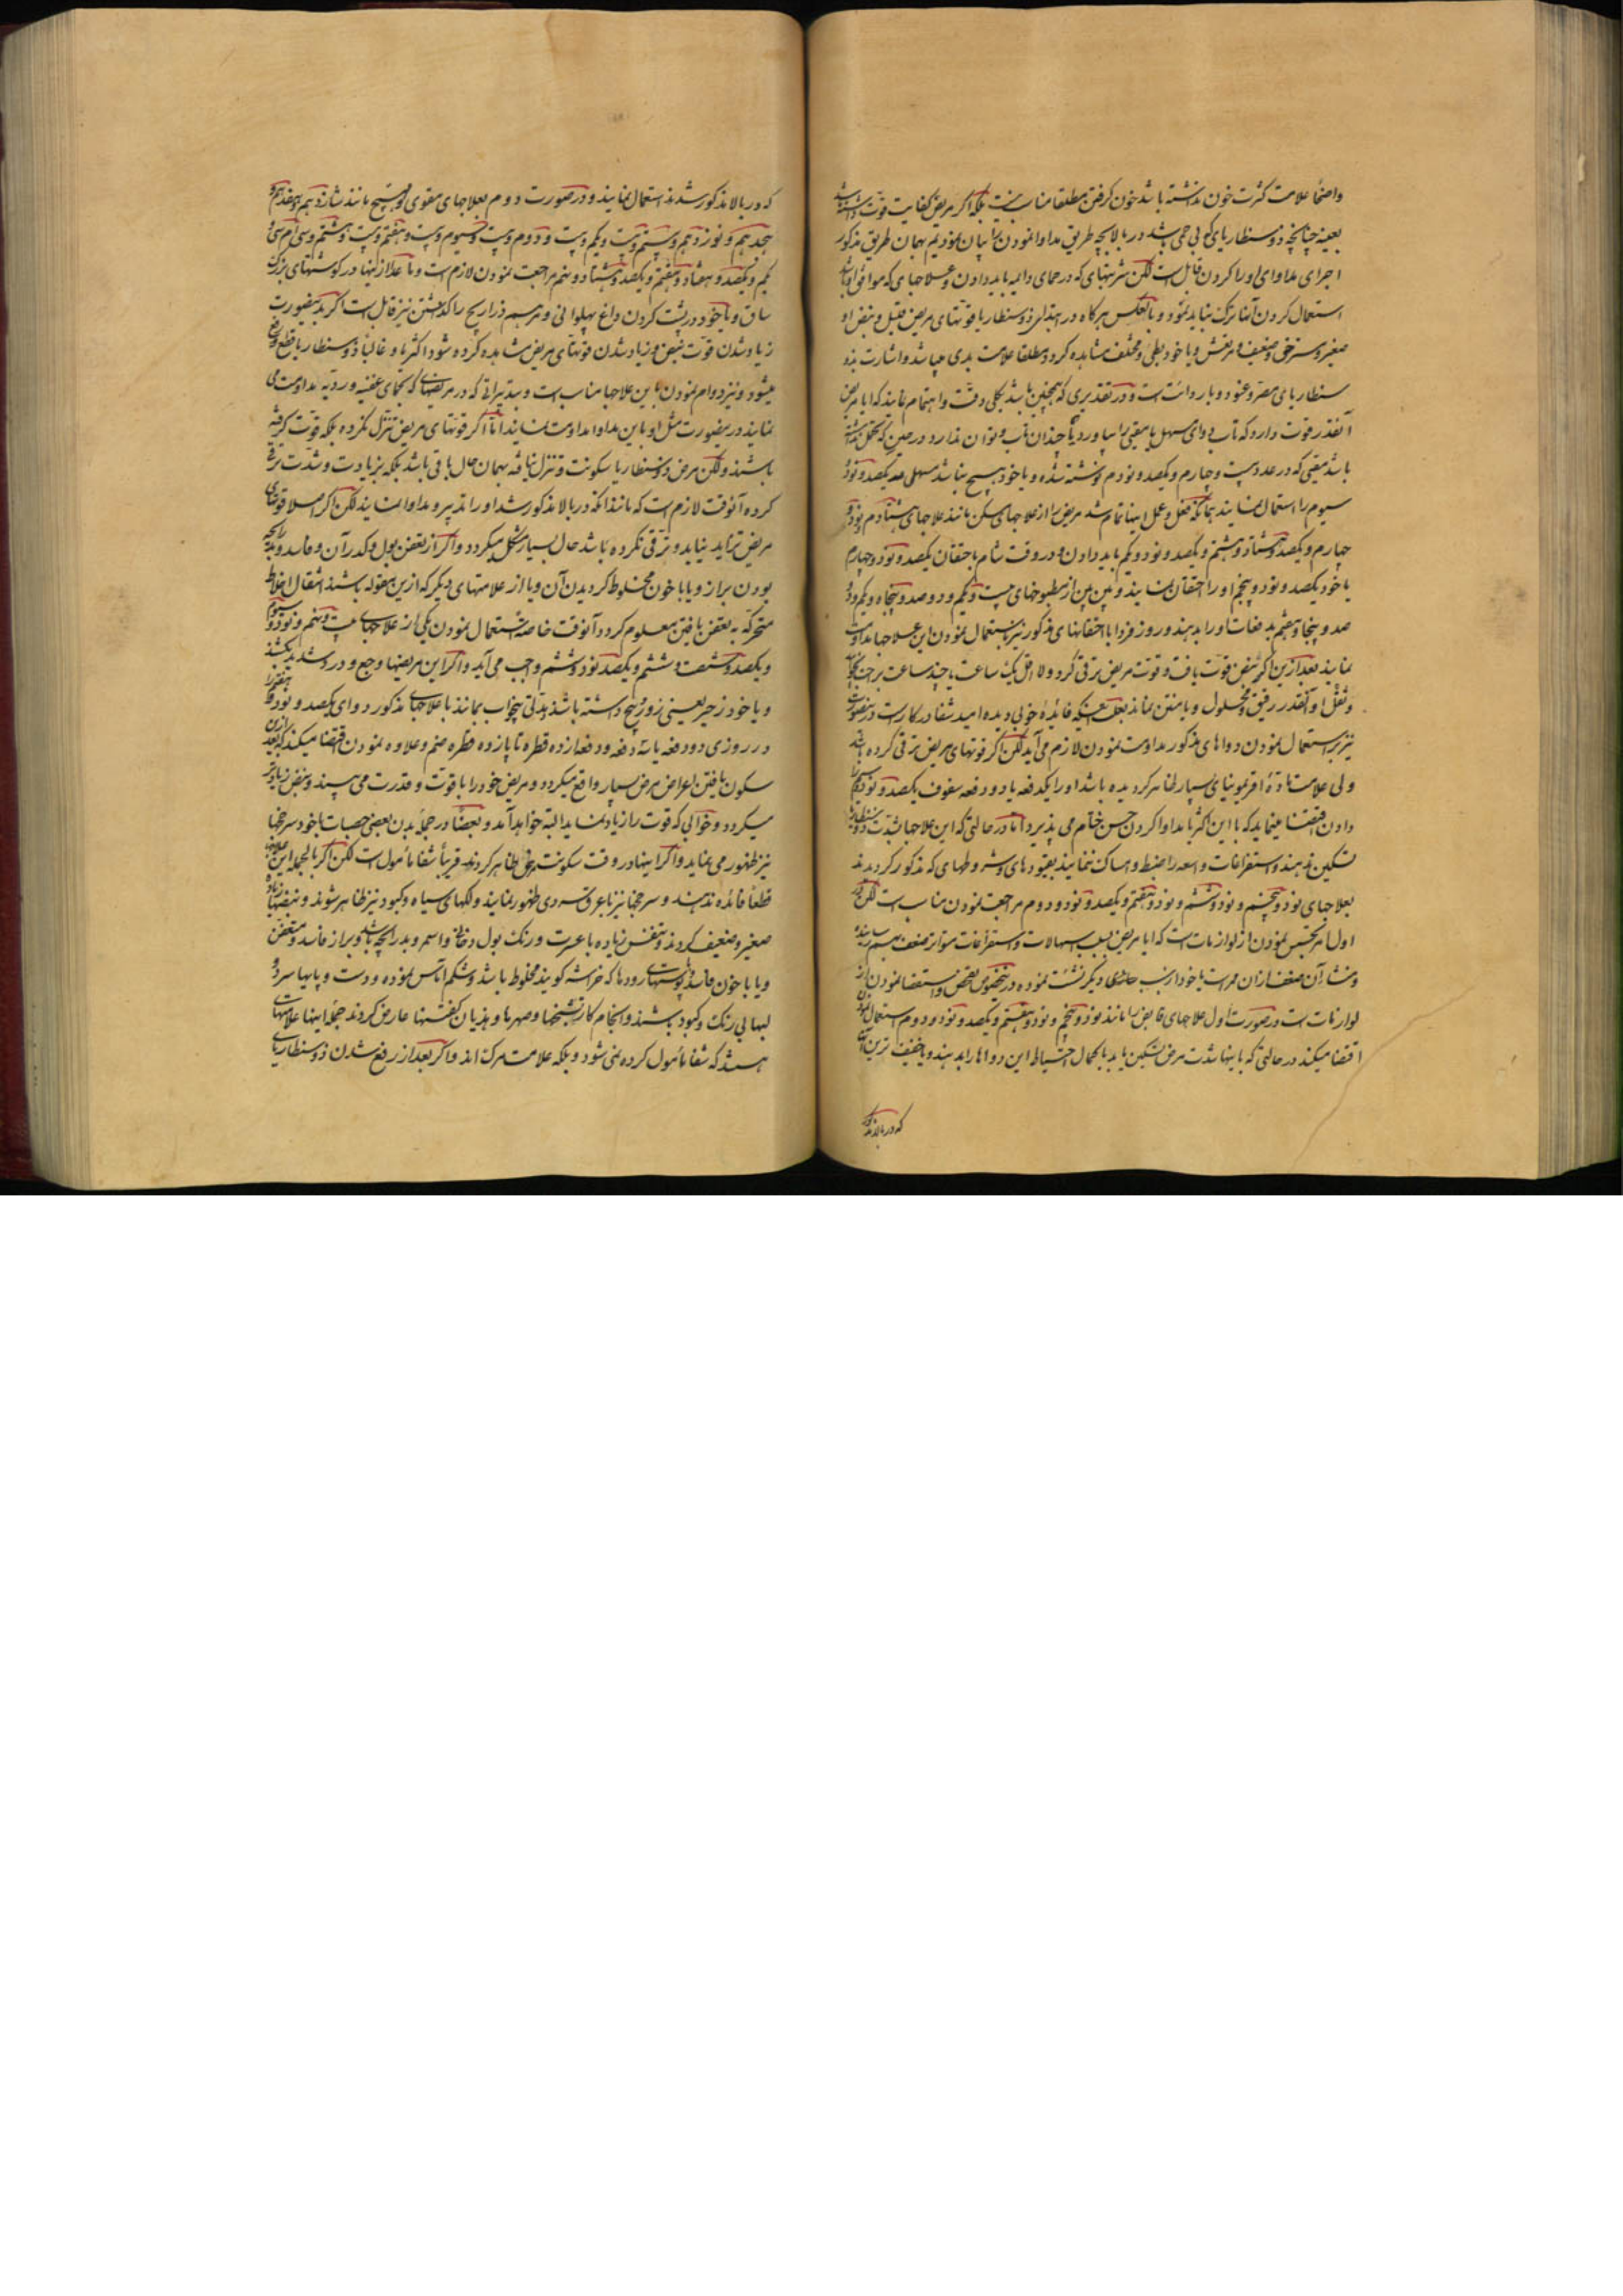 واضحًا علامت کثرت خون نداشته باشد خون کرفتن مطلقا مناسب نیست بلکه اکر مریض کفایت قوت داشته باشد
بعینه چنانچه ذوسنطاریای که بی حمی شد در بالا بچه طریق مداوا نمودن را بیان نمودیم بهمان طریق مذکور
اجرای مداوای او را کردن قابل است لکن شربتهای که در حمای دایمه باید دادن و علاجهای که موافق او باشد
استعمال کردن آنها ترک نباید نمود و بالعکس هرکاه در ابتدای ذوسنطاریا قوتهای مریض قلیل و نبض او
صغیر و مسترخی و ضعیف و مرتعش و یا خود بطی و مختلف مشاهده کردد مطلقا علامت بدی میباشد و اشارت بذو
سنطاریای مضر و عنود و باردائت است و در تقدیری که همچنین باشد بکلی دقت و اهتمام نمایند که ایا مریض
آنقدر قوت دارد که تاب دوای مسهل یا مقیی را بیاورد یا چندان تاب و توان ندارد در حین که تحمل داشته
باشد مقیی که در عدد بیست و چهارم و یکصد و نودم نوشته شده و یا خود هیچ نباشد مسهلی عدد یکصد و نود و
سیوم را استعمال نمایند بمجرد آنکه فعل و عمل اینها تمام شد مریض را از علاجهای مسکن مانند علاجهای هشتادم و نود و
چهارم و یکصد و هشتاد و هشتم و یکصد و نود و یکم باید دادن و در وقت شام باحتقان یکصد و نود و چهارم
یا خود یکصد و نود و پنجم او را احتقان نمایند و بین بین از مطبوخهای بیست و یکم و دوصد و پنجاه و یکم و دو
صد و پنجاه و هفتم بدفعات او را بدهند و روز فردا با احتقانهای مذکور نیز باستعمال نمودن این علاجها مداومت
نمایند بعد از این اکر نبض قوت یافت و قوت مریض ترقی کرد و لااقل یک ساعت یا چند ساعت براحت بخوابد
نیز بر استعمال نمودن دواهای مذکور مداومت نمودن لازم می آید لکن اکر قوتهای مریض ترقی کرده باشد
دادن اقتضا مینماید که با این اکثر با مداوا کردن حسن ختام می پذیرد اما در حالتی که این علاجها شدت ذوسنطاریا
تسکین ندهند و استفراغات واسعه را ضبط و امساک ننمایند بقیودهای و شروطهای که مذکور کردیدند
بعلاجهای نود و پنجم و نود و ششم و نود و هفتم و یکصد و نود و دوم مراجعت نمودن مناسب است لکن
اول امر تجسس نمودن از لوازمات است که ایا مریض بسبب اسهالات و استفراغات متواتر ضعف بهم رسانیده
و منشاء آن ضعف از ان ممر است یا خود از سبب دیکر نشئت نموده درینخصوص تفحص و استقصا نمودن از
لوازمات است در صورت اول علاجهای قابض را مانند نود و پنجم و نود و هفتم و یکصد و نود و دوم استعمال نمودن
اقتضا میکند در حالتی که باینها شدت مرض تسکین یابد با کمال احتیاط این دواها را بدهند و یا خفیف ترین
که در بالا مذکور
که در بالا مذکور شدند استعمال نمایند و در صورت دوم بعلاجهای مقوی و مهیج مانند شانزدهم و هفدهم و
هجدهم و نوزدهم و بیستم و بیست و یکم و بیست و دوم و بیست و سیوم و بیست و هفتم و بیست و هشتم و سی ام و سی و
یکم و یکصد و هفتاد و هفتم و یکصد و هشتاد و پنجم مراجعت نمودن لازم است و ماعدا از اینها در کوشتهای بزرک
ساق و یا خود در پشت کردن داغ پهلوانی و مرهم ذراریح را کذاشتن نیز قابل است اکر بدینصورت
زیاد شدن قوت نبض و زیاد شدن قوتهای مریض مشاهده کرده شود اکثریا و غالباً ذوسنطاریا قطع و رفع
میشود و نیز دوام نمودن باین علاجها مناسب است و بتدبیراتی که در مریضهای که بحمای عفنیه و ردیه مداومت می
نمایند درینصورت مثل او باین مداوا مداومت نمایند اما اکر قوتهای مریض تنزل نکرده بلکه قوت کرفته
باشند ولکن مرض ذوسنطاریا سکونت و تنزل نیافته بهمان حال باقی باشد بلکه بزیادت و شدت ترقی
کرده آنوقت لازم است که مانند آنکه در بالا مذکور شد او را تدبیر و مداوا نمایند لکن اکر اصلا قوتهای
مریض تزاید نیابد و ترقی نکرده باشد حال بسیار مشکل میکردد و اکر از تعفن بول و کدر آن و فاسد و بدرایحه
بودن براز و یا با خون مخلوط کردیدن آن و یا از علامتهای دیکر که ازین مقوله باشند انتقال اخلاط
متحرکه به تعفن یافتن معلوم کردد آنوقت خاصةً استعمال نمودن یکی از علاجهای بیست و پنجم و نود و سیوم
و یکصد و شصت و ششم و یکصد و نود و ششم واجب می آید و اکر این مریضها وجع و درد شدید بکشند
و یا خود زحیر یعنی زور پیچ داشته باشند مدتی بیخواب بمانند با علاجهای مذکور دوای یکصد و نود و هفتم را
در روزی دو دفعه یا سه دفعه و دفعه از ده قطره تا پانزده قطره ضم و علاوه نمودن اقتضا میکند که بعد از ان
سکون یافتن اعراض مرض بسیار واقع میکردد و مریض خود را با قوت و قدرت می بیند و نبض زیاده تر
میکردد و خوابی که قوت را زیاد نماید البته خواهد آمد و بعضًا در جمله بدن بعضی حصبات یا خود سرخچها
نیز ظهور می نماید و اکر اینها در وقت سکونت مرض ظاهر کردند قریباً شفا مأمول است لکن اکر بالجمله این علاجها
قطعاً فائده ندهند و سرخچها نیز با عرق سردی ظهور نمایند و لکهای سیاه و کبود نیز ظاهر شوند و نبضها زیاده
صغیر و ضعیف کردند و تنفس زیاده با عسرت و رنک بول دخانی و اسمر و بدرایحه باشد و براز فاسد و متعفن
و یا با خون فاسد و پوستهای رودها که خراشه کویند مخلوط باشد و شکم اماس نموده و دست و پایها سرد و
لبها بی رنک و کبود باشند و انجام کار تشنجها و صرعها و هذیان کفتنها عارض کردند جمله اینها علامتهای
هستند که شفا مأمول کرده نمی شود و بلکه علامت مرک اند و اکر بعد از رفع شدن ذوسنطاریای